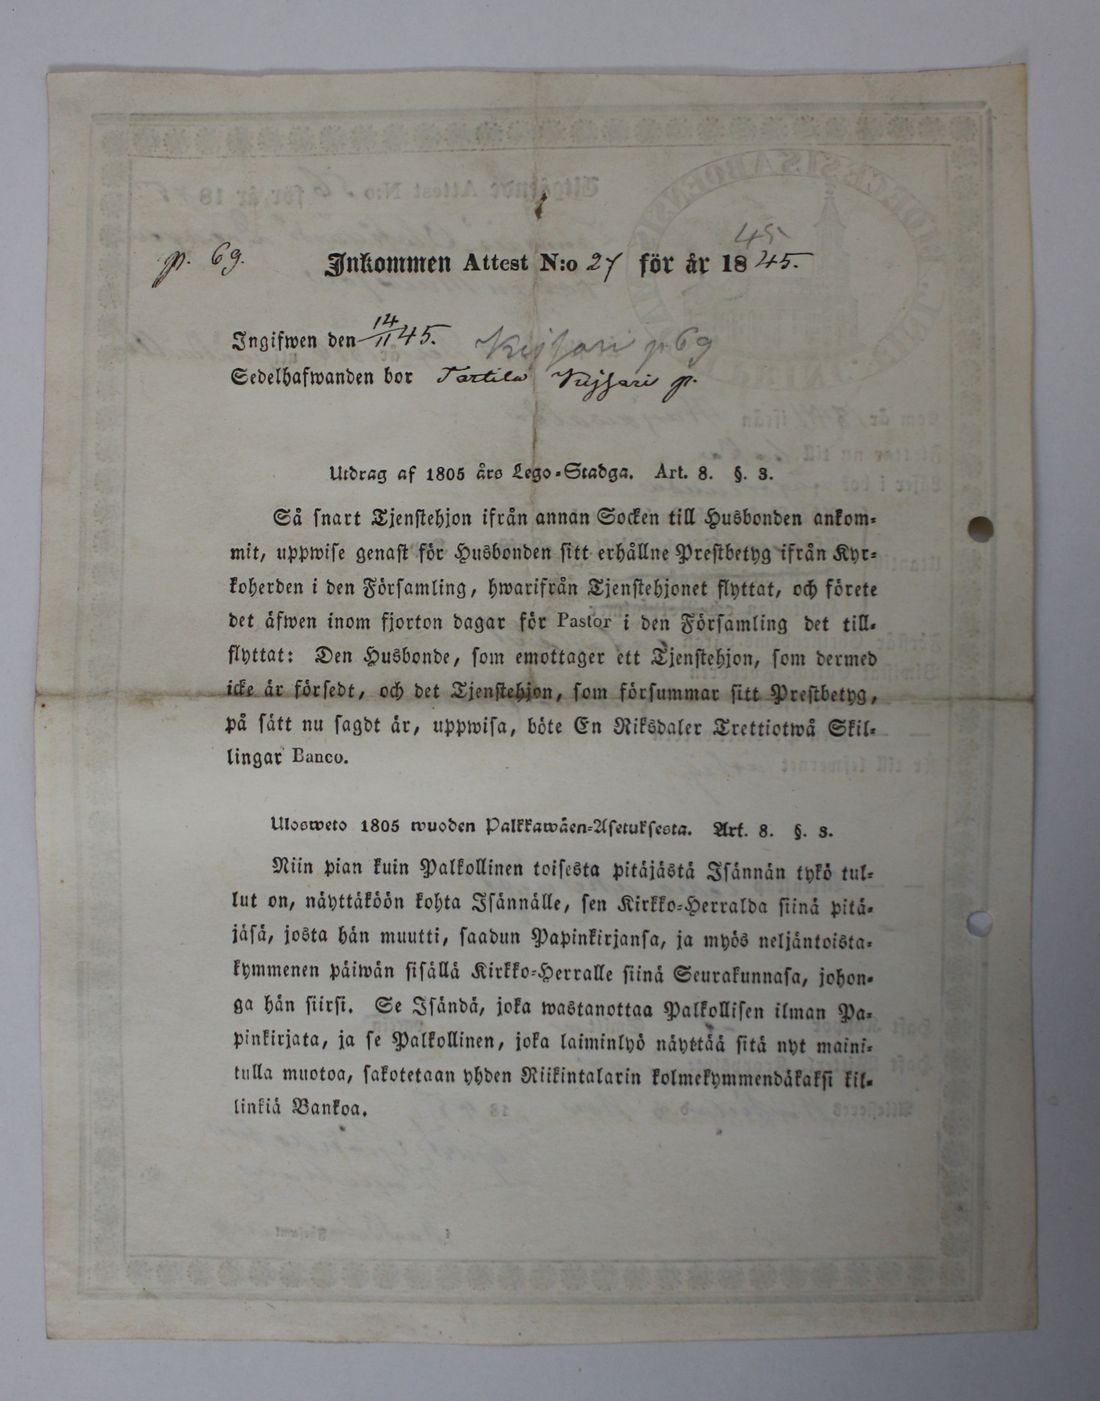 45
p. 69. Inkommen Attest N:o 27 för år 1845.
Ingifwen den 14/11 45. p 69
Sedelhafwanden bor p.
Utdrag af 1805 års Lego-Stadga. Art. 8. §. 3.
Så snart Tjenstehjon ifrån annan Socken till Husbonden ankom-
mit, uppwise genast för Husbonden sitt erhållne Prestbetyg ifrån Kyr-
koherden i den Församling, hwarifrån Tjenstehjonet flyttat, och förete
det äfwen inom fjorton dagar för Pastor i den Församling det till-
flyttat: Den Husbonde, som emottager ett Tjenstehjon, som dermed
icke är försedt, och det Tjenstehjon, som försummar sitt Prestbetyg,
på sätt nu sagdt är, uppwisa, böte En Riksdaler Trettiotwå Skil-
lingar Banco.
Ulosweto 1805 wuoden Palkkawäen-Asetuksesta. Art. 8. §. 3.
Niin pian kuin Palkollinen toisesta pitäjästä Isännän tykö tul-
lut on, näyttäköön kohta Isännälle, sen Kirkko-Herralda siinä pitä-
jäsä, josta hän muutti, saadun Papinkirjansa, ja myös neljäntoista-
kymmenen päiwän sisällä Kirkko-Herralle siinä Seurakunnasa, johon-
ga hän siirsi. Se Isändä, joka wastanottaa Palkollisen ilman Pa-
pinkirjata, ja se Palkollinen, joka laiminlyö näyttää sitä nyt maini-
tulla muotoa, sakotetaan yhden Riikintalarin kolmekymmendäkaksi kil-
linkiä Bankoa.